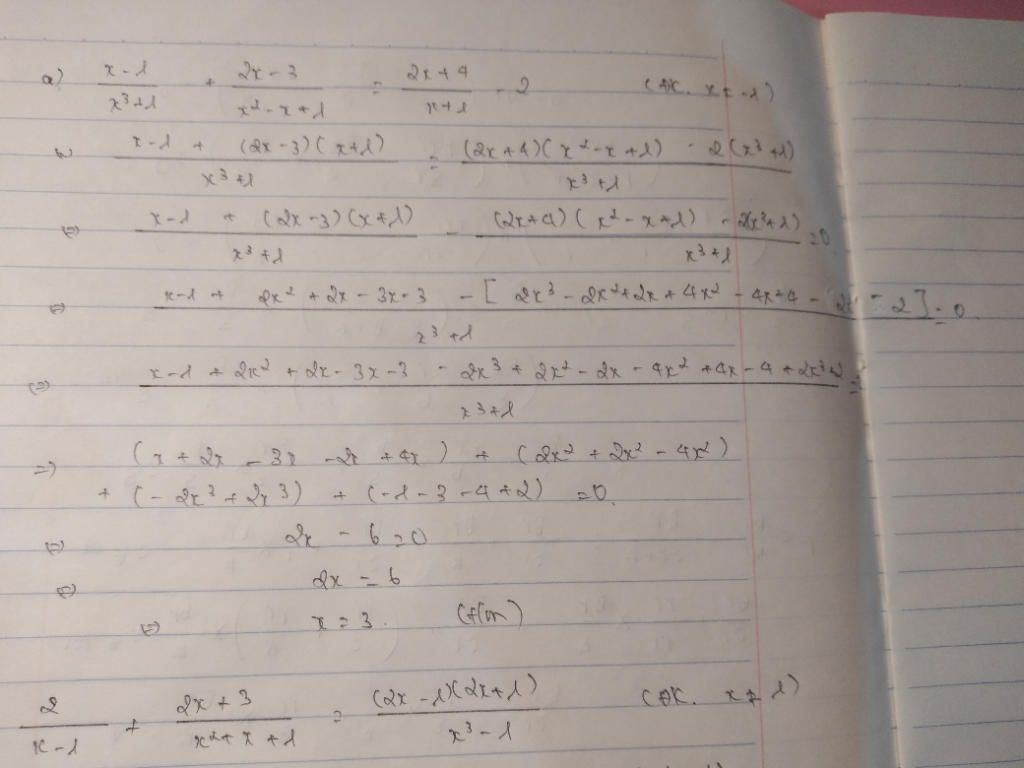 a) (x-1)/(x³+1) + (2x-3)/(x²-x+1) = (2x+4)/(x+1) - 2 (ĐK. x ≠ -1)
(x-1 + (2x-3)(x+1))/(x³+1) = ((2x+4)(x²-x+1) - 2(x³+1))/(x³+1)
⇔ (x-1 + (2x-3)(x+1))/(x³+1) - ((2x+4)(x²-x+1) - 2(x³+1))/(x³+1) = 0
⇔ (x-1 + 2x²+2x-3x-3 - [2x³-2x²+2x+4x²-4x+4 - 2x³ - 2])/(x³+1) = 0
⇔ (x-1+2x²+2x-3x-3-2x³+2x²-2x-4x²+4x-4+2x³+2)/(x³+1) =
⇒ (x+2x-3x-2x+4x) + (2x²+2x²-4x²)
+ (-2x³+2x³) + (-1-3-4+2) = 0.
⇔ 2x - 6 = 0
⇔ 2x = 6
⇔ x = 3. (t/m)
2/(x-1) + (2x+3)/(x²+x+1) = ((2x-1)(2x+1))/(x³-1) (ĐK. x ≠ 1)